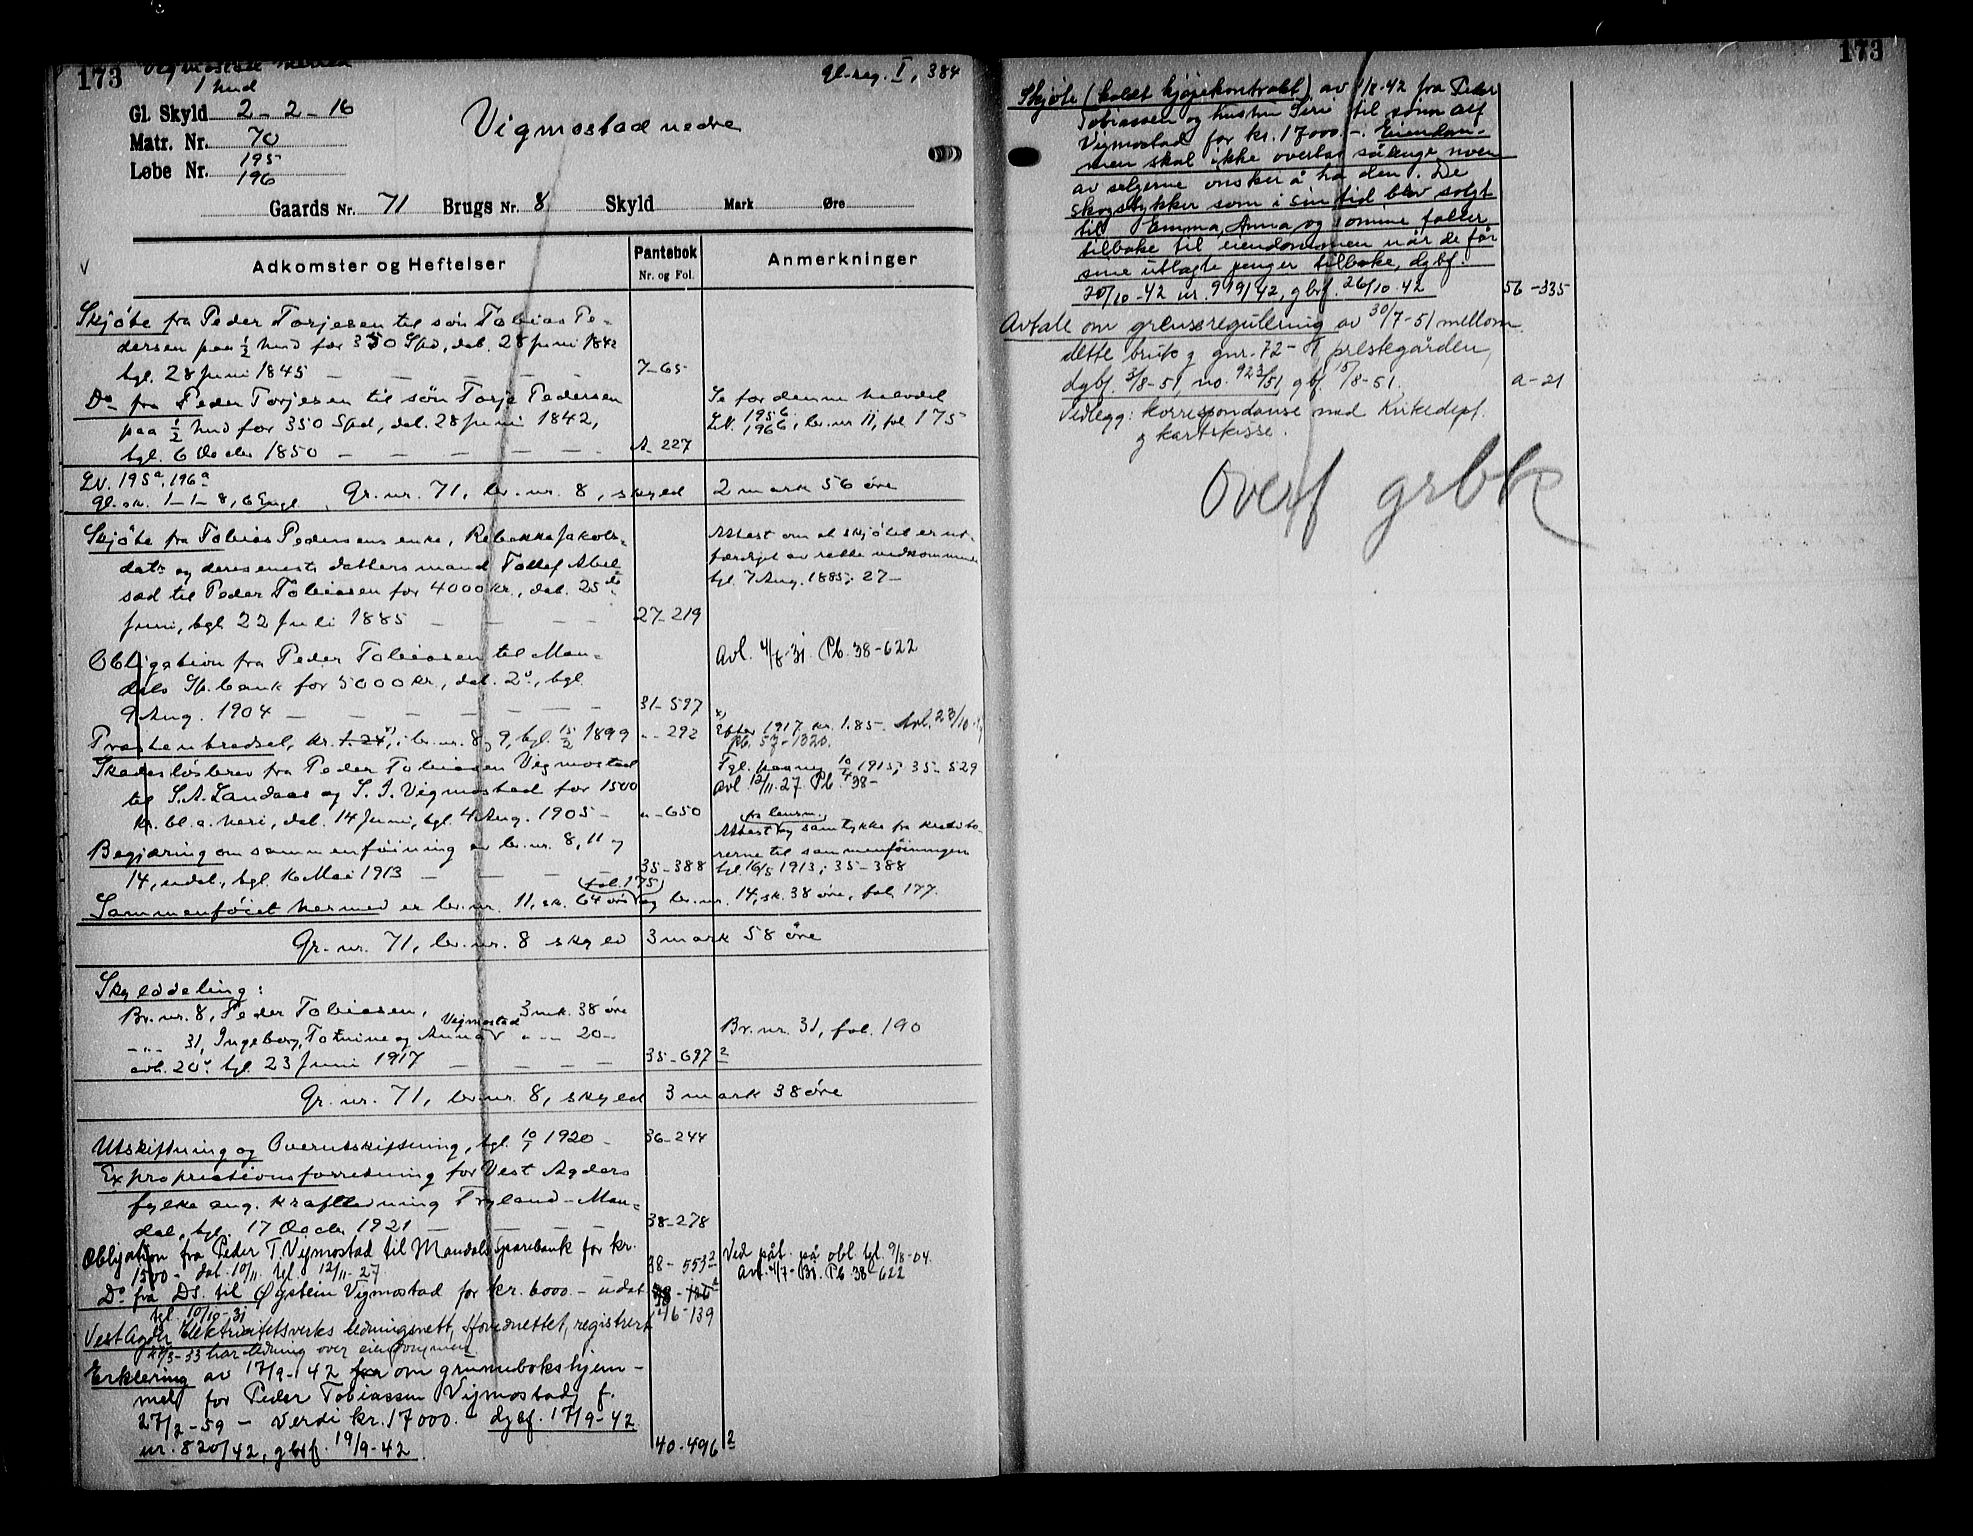 173
Vigmostad herred
1 hud
Gl-reg. I, 384
Gl. Skyld 2-2-16
Matr. Nr. 70
Løbe Nr. 195
196
Vigmostad nedre
Gaards Nr. 71 Brugs Nr. 8 Skyld Mark Øre
Adkomster og Heftelser
Pantebok
Nr. og Fol.
Anmerkninger
Skjøte fra Peder Torjesen til søn Tobias Pe-
dersen paa ½ hud for 350 Spd, dat. 28 Juni 1842
tgl. 28 Juni 1845 — 7-65
Do fra Peder Torjesen til søn Torje Pedersen
paa ½ hud for 350 Spd, dat. 28 Juni 1842,
tgl. 6 Octbr 1850 — A-227
Se for denne halvdel
L.N. 195 b, 196 b, br. nr 11, fol 175
L.N. 195a, 196a
gl. sk. 1-1-8, 6 Engl. Gr. nr. 71, br. nr. 8, skyld 2 mark 56 øre
Skjøte fra Tobias Pedersens enke, Rebekka Jakobs-
datr og deres eneste datters mand Tollef Abel-
sæd til Peder Tobiasen for 4000 kr., dat. 25de
Juni, tgl. 22 Juli 1885 — 27-219
Attest om at skjøtet er ut-
færdiget av rette vedkommende
tgl. 7 Aug. 1885; 27-
Obligation fra Peder Tobiasen til Man-
dals Sp.bank for 5000 kr., dat. 2., tgl.
9 Aug. 1904 — 31-597
Avl. 4/8-31. Pb. 38-622
Præstenbredsel, kr. 1.24 x), i br. nr. 8 og 9, tgl. 15/2 1899 " - 292
x) Efter 1917 kr. 1.85 - Avl. 23/10
Pb. 57-1320.
Skadesløsbrev fra Peder Tobiasen Vigmostad
til S. A. Landaas og S. I. Vigmostad for 1500
kr. bl. a. heri, dat. 14 Juni, tgl. 4 Aug. 1905 - " - 650
Tgl. paany 10/4 1915; 35-529
avl 12/11-27 Pb. 38-
Begjæring om sammenføining av br. nr. 8, 11 og
14, udat., tgl. 16 Mai 1913 — 35-388
fra lensm.
Attest og samtykke fra kredito-
rerne til sammenføiningen
tgl 16/5 1913; 35-388
Sammenføiet hermed er br. nr. 11, sk. 64 øre (fol. 175) og br. nr. 14, sk. 38 øre, fol 177.
Gr. nr. 71, br. nr. 8 skyld 3 mark 58 øre
Skylddeling:
Br. nr. 8, Peder Tobiasen, 3 mk. 38 øre
" " 31, Ingeborg, Tomine og Anna Vigmostad " - 20 -
avh. 20., tgl. 23 Juni 1917 — 35-697 2
Br. nr. 31, fol. 190
Gr. nr. 71, br. nr. 8, skyld 3 mark 38 øre
Utskiftning og Overutskiftning, tgl. 10/1 1920 - 36-244
Expropriationsforretning for Vest Agders
fylke ang. kraftledning Tryland - Man-
dal, tgl. 17 Octbr 1921 — 38-278
Obligation fra Peder T. Vigmostad til Mandals Sparebank for kr.
1500 - dat. 10/11. tgl. 12/11-27 38-553 2
Ved påt. på obl. tgl. 9/8-04.
Avl. 4/7-31. Pb 38-622
Do fra Ds. til Øystein Vigmostad for kr. 6000. - udat
tgl. 10/10-31
Vest Agder Elektricitetsverks ledningsnett, Hovednettet, registrert 46-139
/3-33 har ledning over eiendommen
Erklering av 17/9-142 om grunnbokshjem-
mel for Peder Tobiassen Vigmostad, f.
27/2-59 - Verdi kr. 17000. - dgbf. 17/9-42
nr. 820/42, gbrf. 19/9-42 40-496 2
173
Skjøte (kaldt kjøpekontrakt) av 1/8-42 fra Peder
Tobiassen og hustru Siri til sønn Alf
Vigmostad for kr. 17000.-. Eiendom-
men skal ikke overtas sålenge noen
av selgerne ønsker å ha den. De
skogstykker som i sin tid blev solgt
til Emma, Anna og Tomine faller
tilbake til eiendommen når de får
sine utlagte penger tilbake, dgbf.
20/10-42 nr. 919/42, gbrf. 26/10-42 56-335
Avtale om grenseregulering av 30/7-51 mellom
dette bruk og gnr. 72 - prestegården,
dgbf. 3/8-51, no. 923/51, gbf. 15/8-51. a-21
Vedlegg: korrespondanse med Kirkedept.
og kartskisse.
Overf grbk